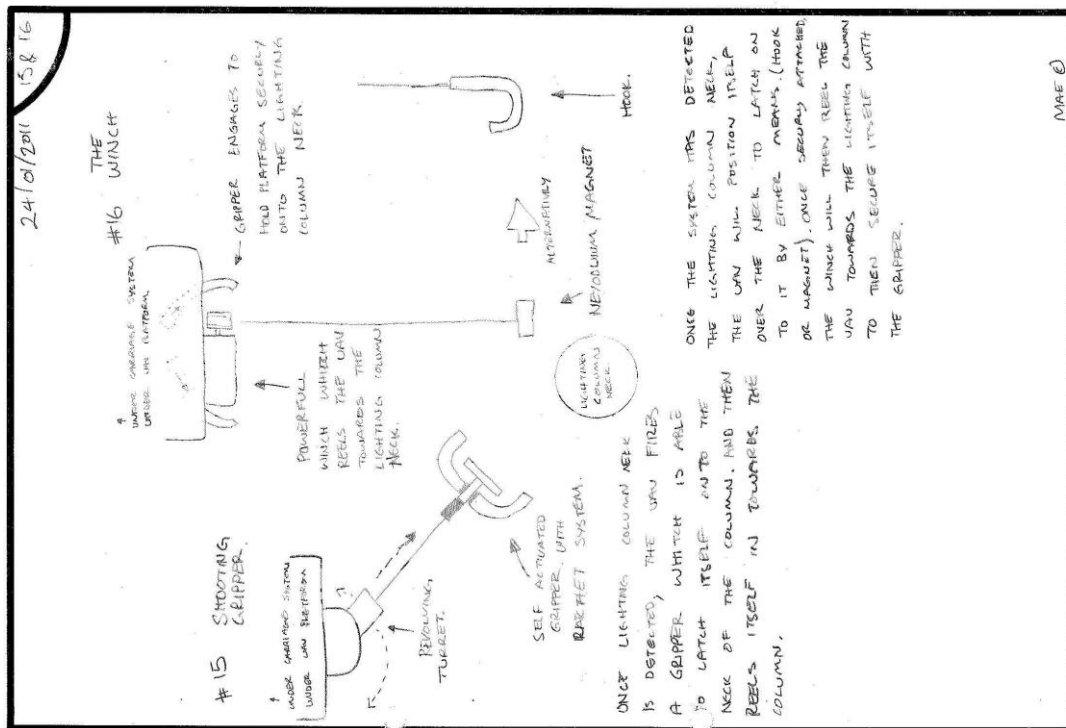 24/01/2011
15 & 16
#15 SHOOTING
GRIPPER.
UNDER CARRIAGE SYSTEM
UNDER UAV PLATFORM
REVOLVING
TURRET.
SELF ACTIVATED
GRIPPER WITH
RATCHET SYSTEM.
ONCE LIGHTING COLUMN NECK
IS DETECTED, THE UAV FIRES
A GRIPPER WHITCH IS ABLE
TO LATCH ITSELF ONTO THE
NECK OF THE COLUMN. AND THEN
REELS ITSELF IN TOWARDS THE
COLUMN.
#16 THE
WINCH
UNDER CARRIAGE SYSTEM
UNDER UAV PLATFORM.
GRIPPER ENGAGES TO
HOLD PLATFORM SECURLY
ONTO THE LIGHTING
COLUMN NECK.
POWERFULL
WINCH WHITCH
REELS THE UAV
TOWARDS THE
LIGHTING COLUMN
NECK.
LIGHTING
COLUMN
NECK
NEIODWIUM MAGNET
ALTERNATIVLY
HOOK.
ONCE THE SYSTEM HAS DETECTED
THE LIGHTING COLUMN NECK,
THE UAV WILL POSITION ITSELF
OVER THE NECK TO LATCH ON
TO IT BY EITHER MEANS. (HOOK
OR MAGNET). ONCE SECURLY ATTACHED,
THE WINCH WILL THEN REEL THE
UAV TOWARDS THE LIGHTING COLUMN
TO THEN SECURE ITSELF WITH
THE GRIPPER.